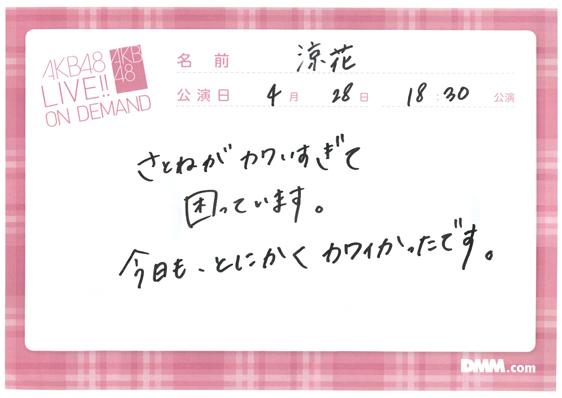 AKB48
LIVE!!
ON DEMAND
AKB
48
名前 涼花
公演日 4月28日 18:30 公演
さとねがカワいすぎて
困っています。
今日も、とにかくカワイかったです。
DMM.com